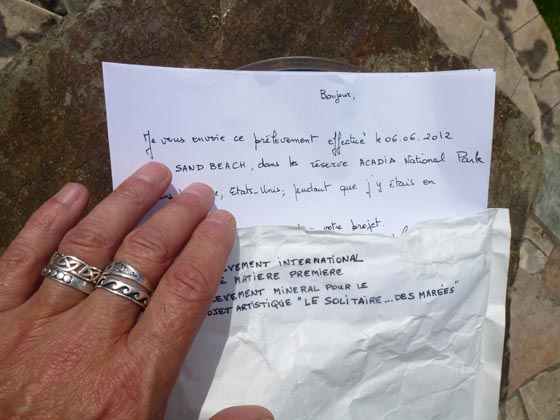 Bonjour,
Je vous envoie ce prélèvement effectué le 06.06.2012
SAND BEACH, dans la réserve ACADIA National Park
Etats-Unis, pendant que j'y étais en
votre projet.
INTERNATIONAL
MATIERE PREMIERE
MINERAL POUR LE
ARTISTIQUE "LE SOLITAIRE...DES MARÉES"